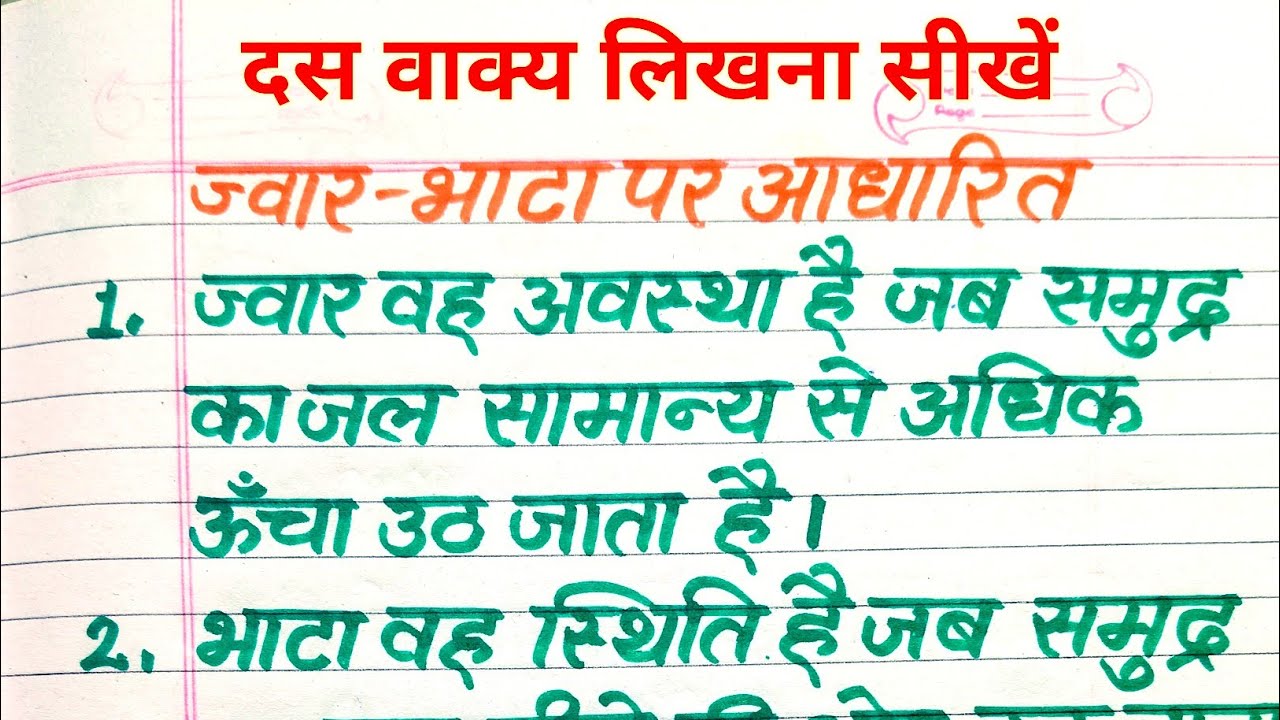 दस वाक्य लिखना सीखें
Page
ज्वार-भाटा पर आधारित
1. ज्वार वह अवस्था है जब समुद्र
का जल सामान्य से अधिक
ऊँचा उठ जाता है।
2. भाटा वह स्थिति है जब समुद्र